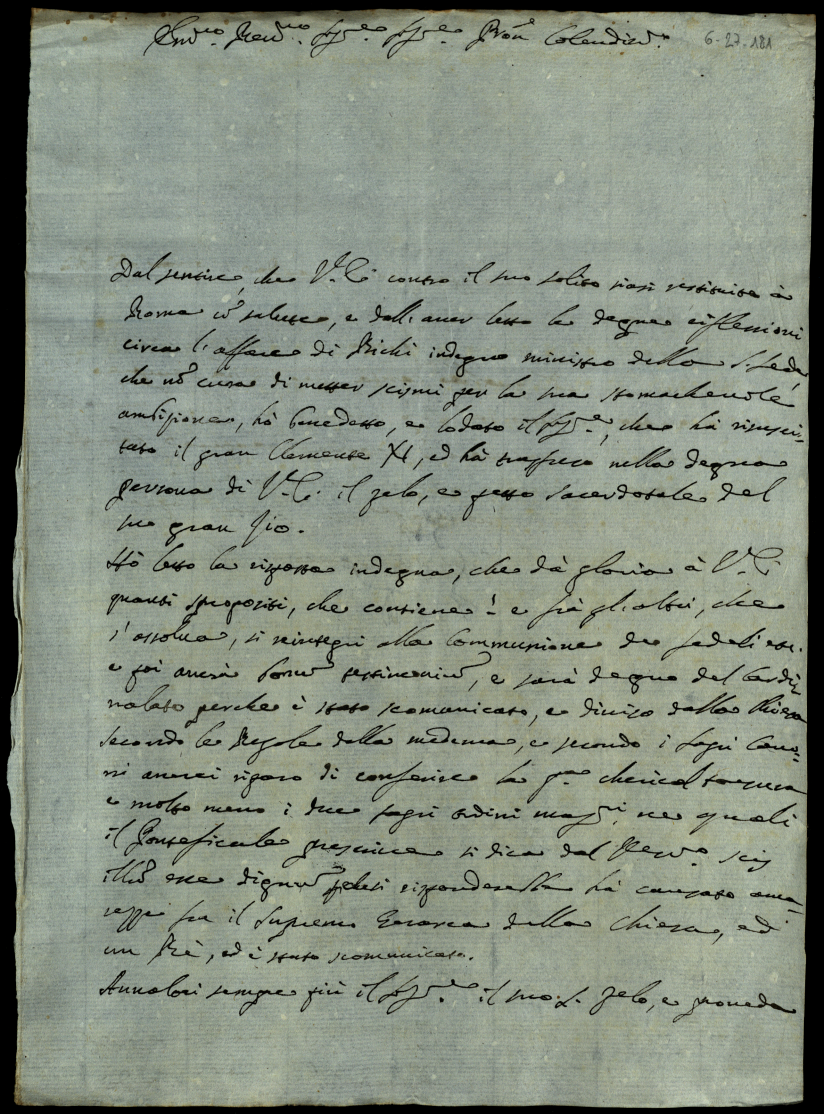 Em.mo Rev.mo Sig.re Sig.re Pron Colendis.mo
6-27-181
Dal sentire, che V.E. contro il suo solito siasi restituita à
Roma cō salute, e dall'aver letto le degne riflessioni
circa l'affare di Bichi indegno ministro della S. Sede
che nō cura di metter scismi per la sua stomachevole
ambizione, hò benedetto, e lodato il Sig.re, che hà risusci-
tato il gran Clemente XI, ed hà trasfuso nella degna
persona di V.E. il zelo, e petto sacerdotale del
suo gran Zio.
Hò letto la risposta indegna, che dà gloria à V.E.
quanti spropositi, che contiene! e frà gli altri, che
s'assolva, si reintegri alla Communione de fedeli
e poi averà testimoniū, e sarà degno del Cardi-
nalato perche è stato scomunicato, e diviso dalla Chiesa
secondo le Regole della medema, e secondo i sagri Cano-
ni averei riparo di conferire la p.ma chierical tonsura
e molto meno i due sagri ordini magg.ri, ne quali
il Pontificale prescrive si dica dal Vesc.o scis
illū esse dignū risponderebbe hà causato ama-
rezze fra il Supremo Gerarca della Chiesa, ed
un Rè, ed è stato scomunicato.
Avvalori sempre più il Sig.re il suo S. zelo, e proveda